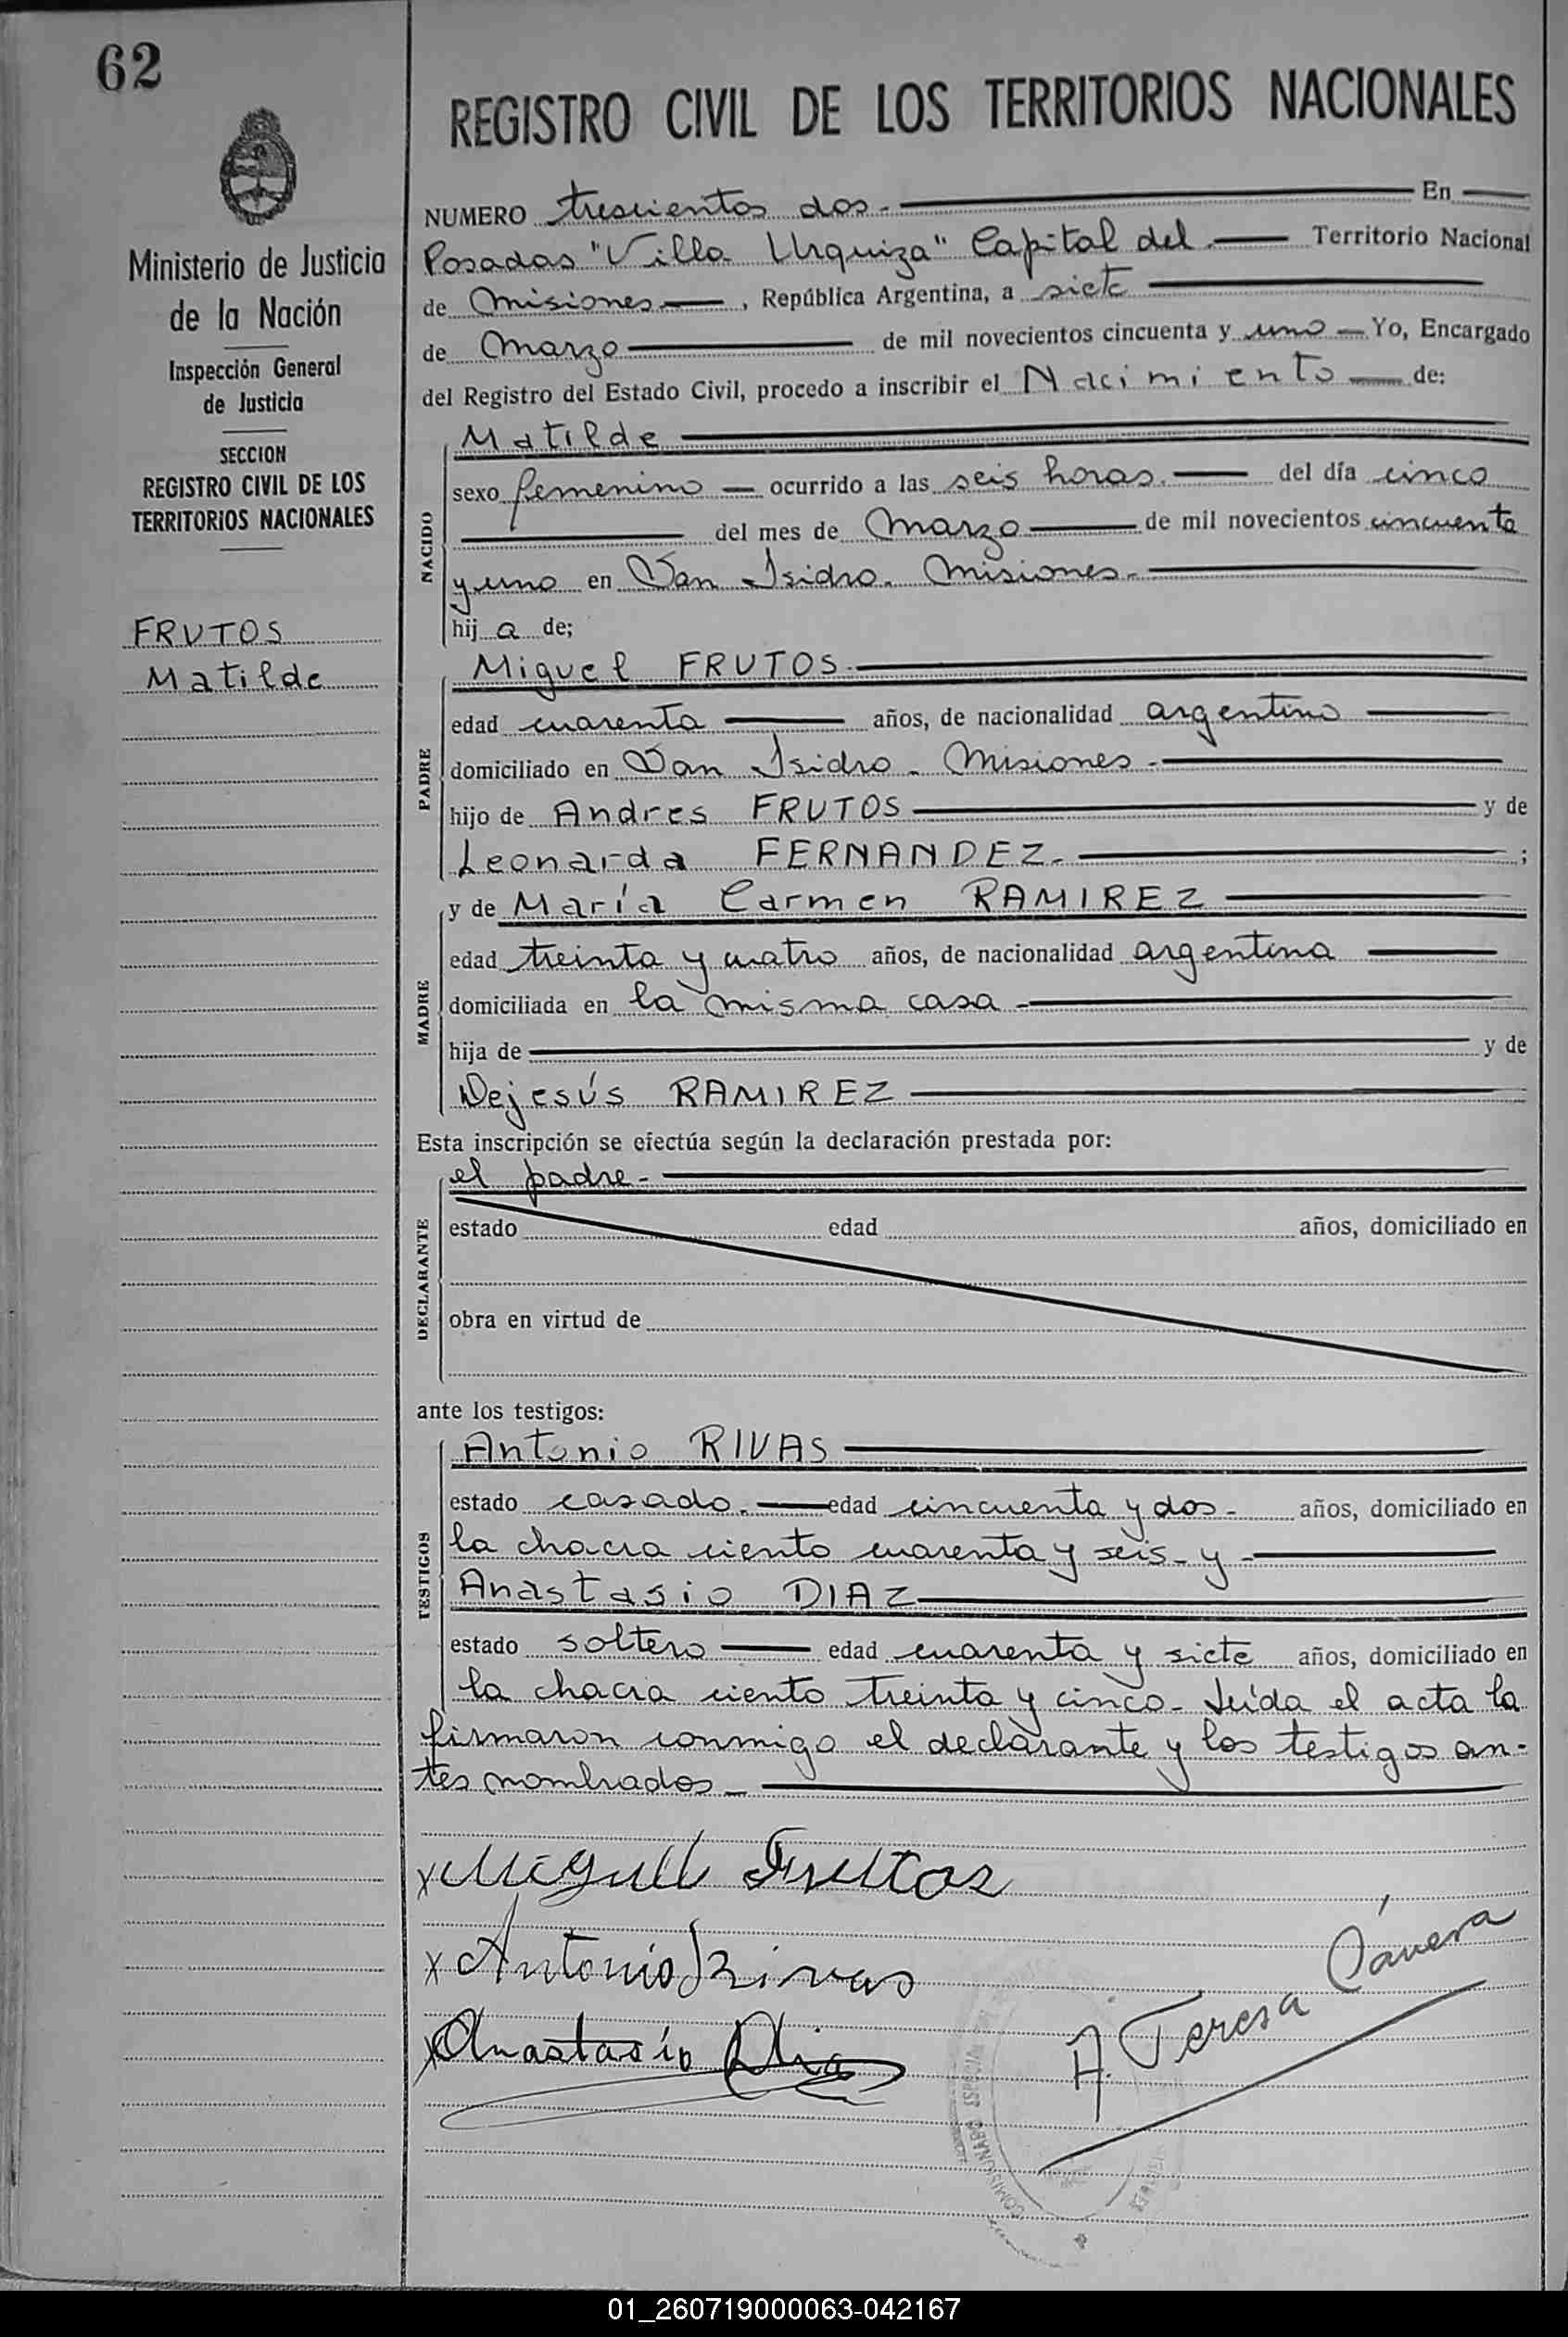 62
Ministerio de Justicia
de la Nación
Inspección General
de Justicia
SECCION
REGISTRO CIVIL DE LOS
TERRITORIOS NACIONALES
FRUTOS
Matilde
REGISTRO CIVIL DE LOS TERRITORIOS NACIONALES
NUMERO trescientos dos.- En
Posadas "Villa Urquiza" Capital del Territorio Nacional
de Misiones, República Argentina, a siete
de Marzo de mil novecientos cincuenta y uno Yo, Encargado
del Registro del Estado Civil, procedo a inscribir el Nacimiento de:
NACIDO
Matilde
sexo femenino ocurrido a las seis horas. del día cinco
del mes de Marzo de mil novecientos cincuenta
y uno en San Isidro. Misiones.-
hija de;
PADRE
Miguel FRUTOS.
edad cuarenta años, de nacionalidad argentino
domiciliado en San Isidro - Misiones.-
hijo de Andres FRUTOS y de
Leonarda FERNANDEZ.- ;
MADRE
y de María Carmen RAMIREZ
edad treinta y cuatro años, de nacionalidad argentina
domiciliada en la misma casa.-
hija de y de
Dejesús RAMIREZ
Esta inscripción se efectúa según la declaración prestada por:
DECLARANTE
el padre.-
estado edad años, domiciliado en
obra en virtud de
ante los testigos:
TESTIGOS
Antonio RIVAS
estado casado. edad cincuenta y dos - años, domiciliado en
la chacra ciento cuarenta y seis- y -
Anastasio DIAZ
estado soltero edad cuarenta y siete años, domiciliado en
la chacra ciento treinta y cinco- Leída el acta la
firmaron conmigo el declarante y los testigos an-
tes nombrados.-
x Miguell Frutos
x Antonio Rivas
x Anastasio Diaz
A. Teresa
COMISIONADO ESPECIAL
01_260719000063-042167